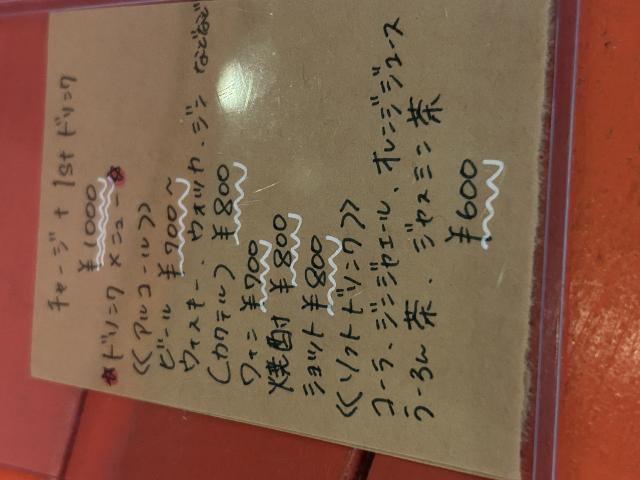 チャージ + 1st ドリンク
¥1000
☆ドリンクメニュー☆
《アルコール》
ビール ¥700〜
ウィスキー、ウォッカ、ジン などなど
(カクテル) ¥800
ワイン ¥700
焼酎 ¥800
ショット ¥800
《ソフトドリンク》
コーラ、ジンジャエール、オレンジジュース
うーろん茶、ジャスミン茶
¥600